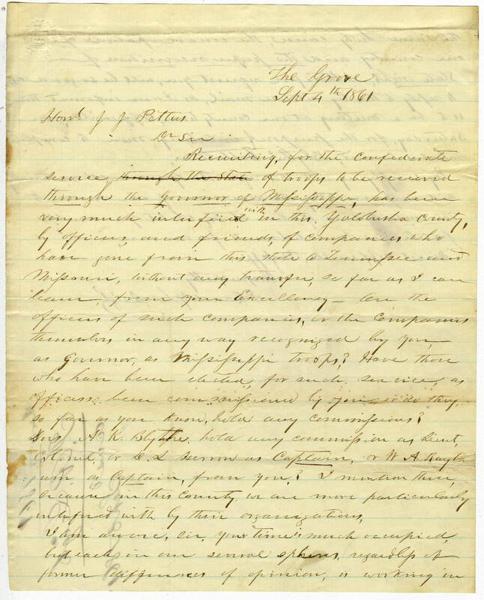 The Grove
Sept 4th 1861
Honl J. J. Pettus
Dr Sir
Recruiting, for the confederate
service through the State of troops to be received
through the Governor of Mississippi, has been
very much interfired with in this Yalobusha County,
by officers, and friends, of companies who
have gone from this State to Tennessee and
Missouri, without any transfer, so far as I can
learn, from your Excellency — Are the
officers of such companies, or the Companies
themselves in any way recognized by you
as Governor, as Mississippi troops? Have those
who have been elected, for such service, as
officers been commissioned by you, or do they,
so far as you know, hold any commissions?
Does A. K. Blythe hold any commission as Lieut
Colonel, or as Captain, or W A
as Captain, from you? I mention these,
because in this County we are more particularly
interfired with by these organizations,
I am aware, Sir, your time is much occupied,
but each in our several spheres, regardless of
former differences of opinion, is working in